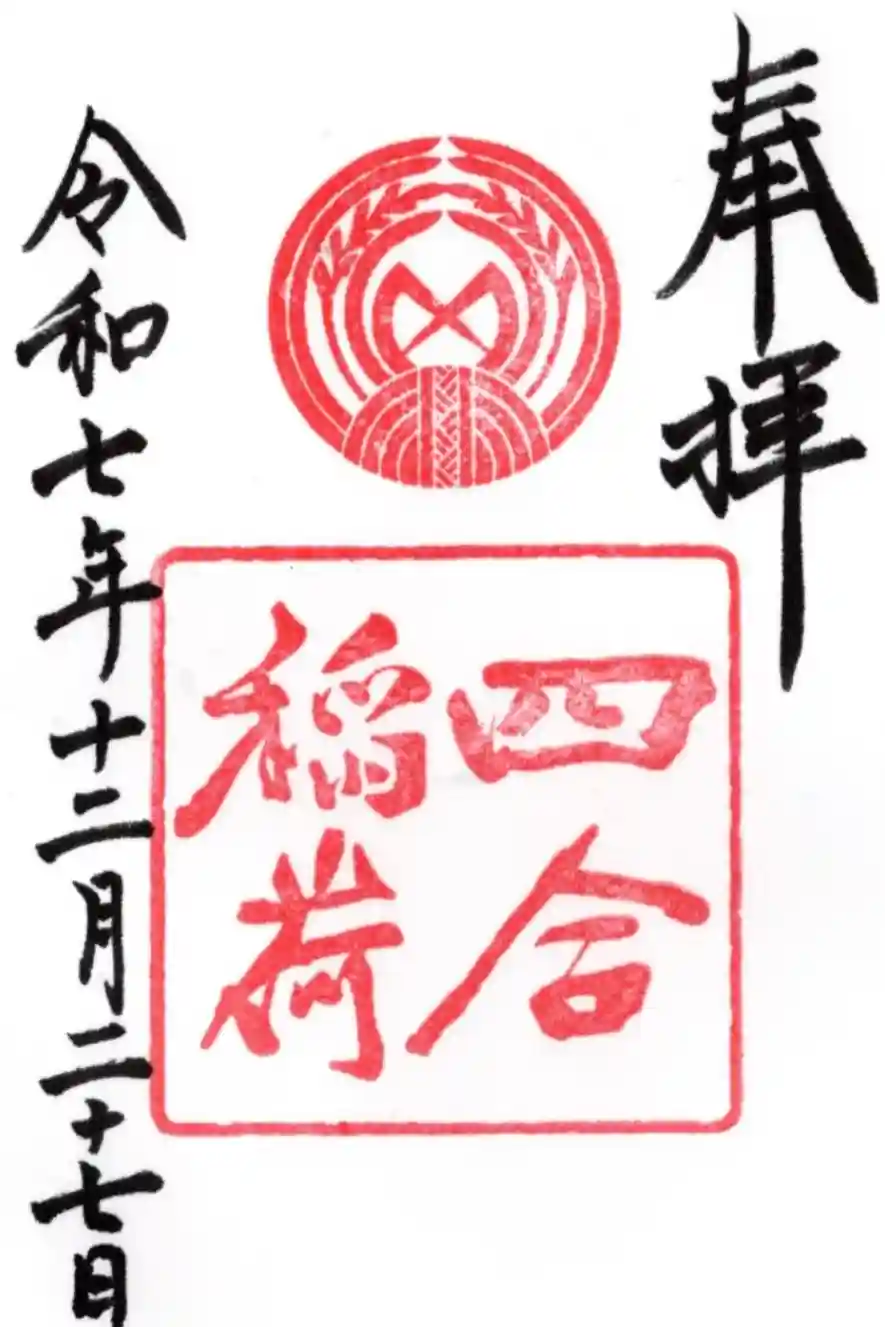 奉拝
四合
稲荷
令和七年十二月二十七日